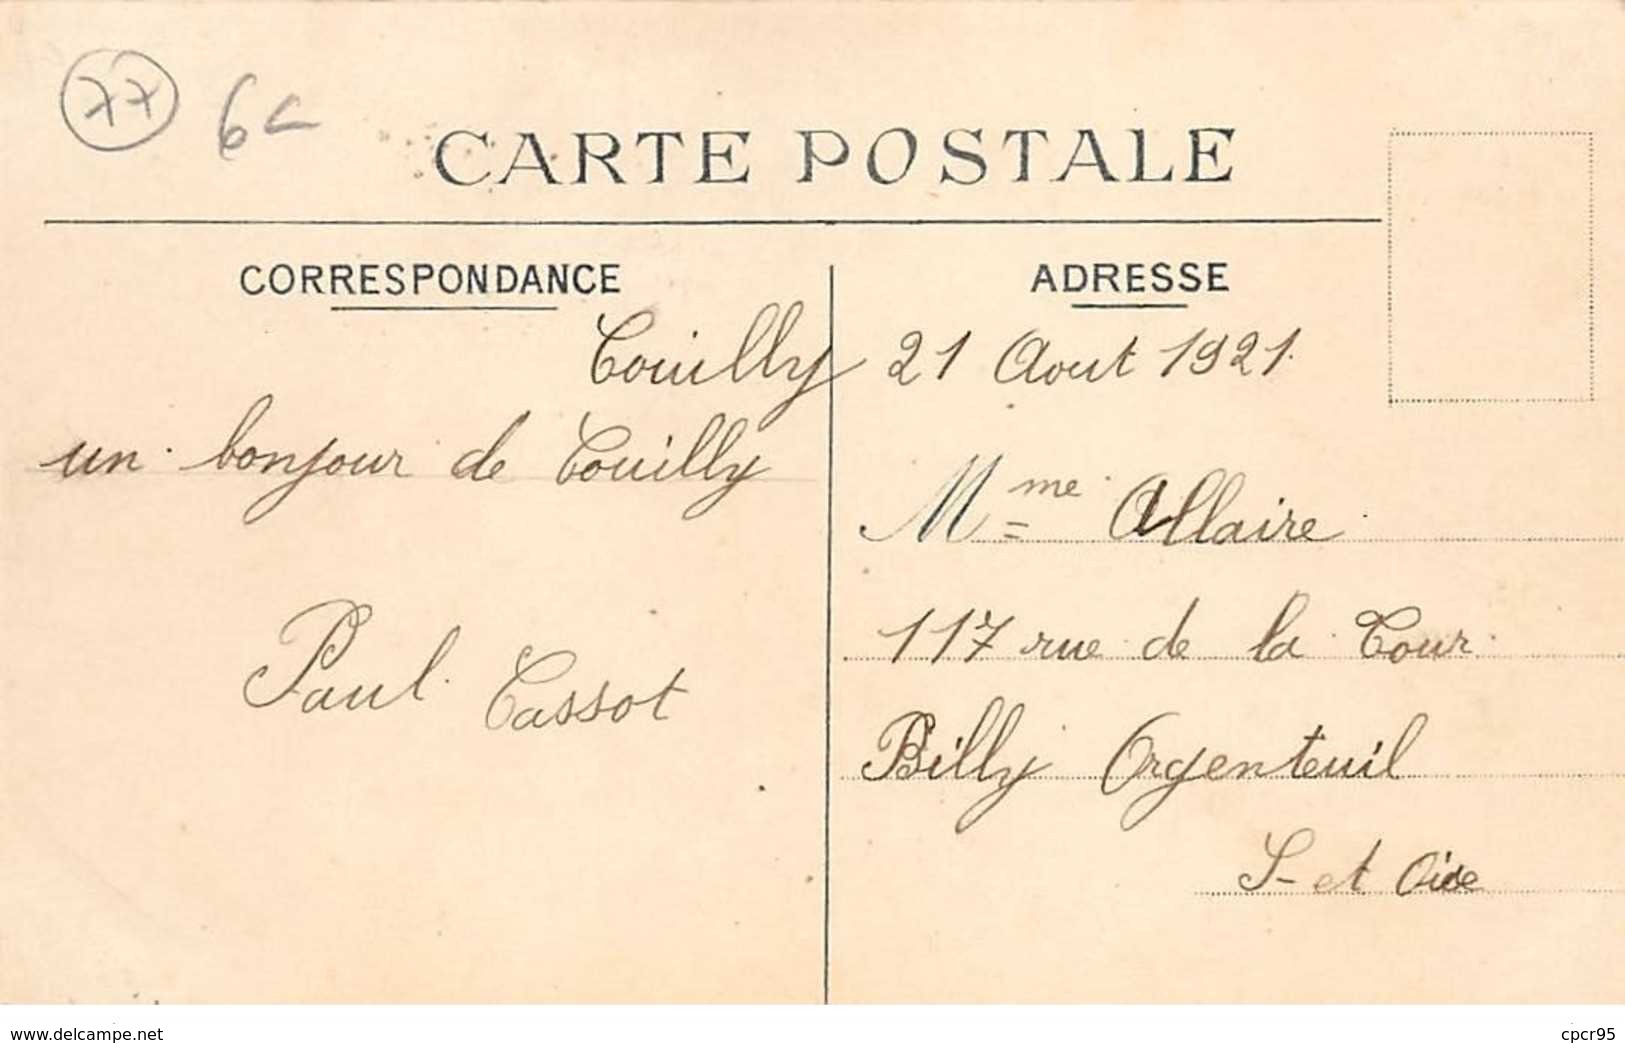 77 6
CARTE POSTALE
CORRESPONDANCE
ADRESSE
Couilly 21 Aout 1921.
un bonjour de Couilly
Paul. Cassot
Mme Allaire
117 rue de la Tour
Billy Orgenteuil
S- et Oise
www.delcampe.net
cpcr95